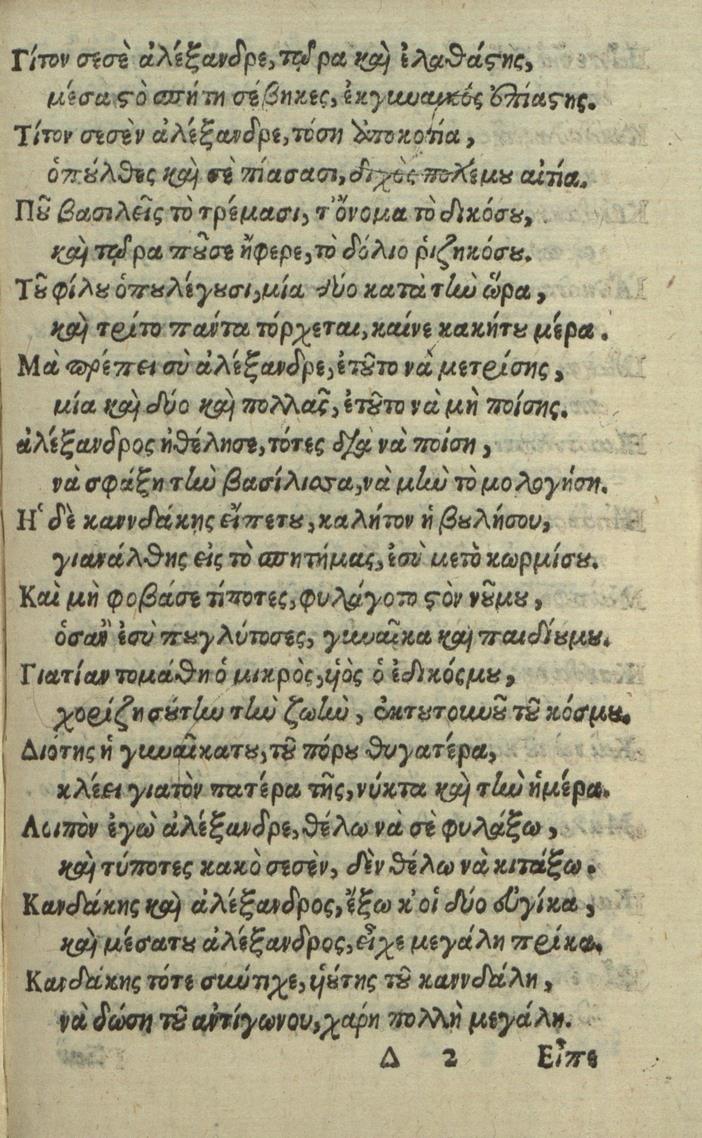 Γίτον σεσὲ ἀλέξανδρε, τώρα καὶ ἐλαθάςης,
μέσα ςὸ σπήτη σέβηκες, ἐκγυναικός ἐπίαςης.
Τίτον σεσὲν ἀλέξανδρε, τόση ἀποκοτία,
ὁπȣ́λθες καὶ σὲ πίασασι, διχὸς πολέμȣ αἰτία.
Πȣ͂ βασιλεῖς τὸ τρέμασι, τ' ὄνομα τὸ δικόσȣ,
καὶ τώρα πȣ͂σε ἤφερε, τὸ δόλιο ῥιζηκόσȣ.
Τȣ͂ φίλȣ ὁπȣλέγȣσι, μία δύο κατὰ τὴν ὥρα,
καὶ τρίτο πάντα τόρχεται, καίνε κακήτȣ μέρα.
Μὰ πρέπει σὺ ἀλέξανδρε, ἐτȣ͂το νὰ μετρίσης,
μία καὶ δύο καὶ πολλαῖς, ἐτȣ͂το νὰ μὴ ποίσης.
ἀλέξανδρος ἠθέλησε, τότες διὰ νὰ ποίση,
νὰ σφάξη τὴν βασίλισσα, νὰ μὴν τὸ μολογήση.
Ἡ δὲ καννδάκης εἶπετȣ, καλήτον ἡ βȣλήσου,
γιανάλθης εἰς τὸ σπητήμας, ἐσὺ μετὸ κωρμίσȣ.
Καὶ μὴ φοβάσε τίποτες, φυλάγοτο ςὸν νȣ͂μȣ,
ὁσὰν ἐσὺ πȣγλύτοσες, γυναῖκα καὶ παιδίȣμȣ.
Γιατίαν τομάθη ὁ μικρὸς, ὑιὸς ὁ ἐδικόςμȣ,
χορίζησȣ́την τὴν ζωὴν, ἐκτȣτοινȣ͂ τȣ͂ κόσμȣ.
Διότης ἡ γυναῖκατȣ, τȣ͂ πόρȣ θυγατέρα,
κλέει γιατὸν πατέρα τῆς, νύκτα καὶ τὴν ἡμέρα.
Λοιπὸν ἐγὼ ἀλέξανδρε, θέλω νὰ σὲ φυλάξω,
καὶ τύποτες κακὸ σεσὲν, δὲν θέλω νὰ κιτάξω.
Κανδάκης καὶ ἀλέξανδρος, ἔξω κ' οἱ δύο εὐγίκα,
καὶ μέσατȣ ἀλέξανδρος, εἶχε μεγάλη πρίκα.
Κανδάκης τότε σιώτηχε, ὑιȣ́της τȣ͂ καννδάλη,
νὰ δώση τȣ͂ ἀντίγωνου, χάρη πολλὴ μεγάλη.
Δ 2 Εἶπε